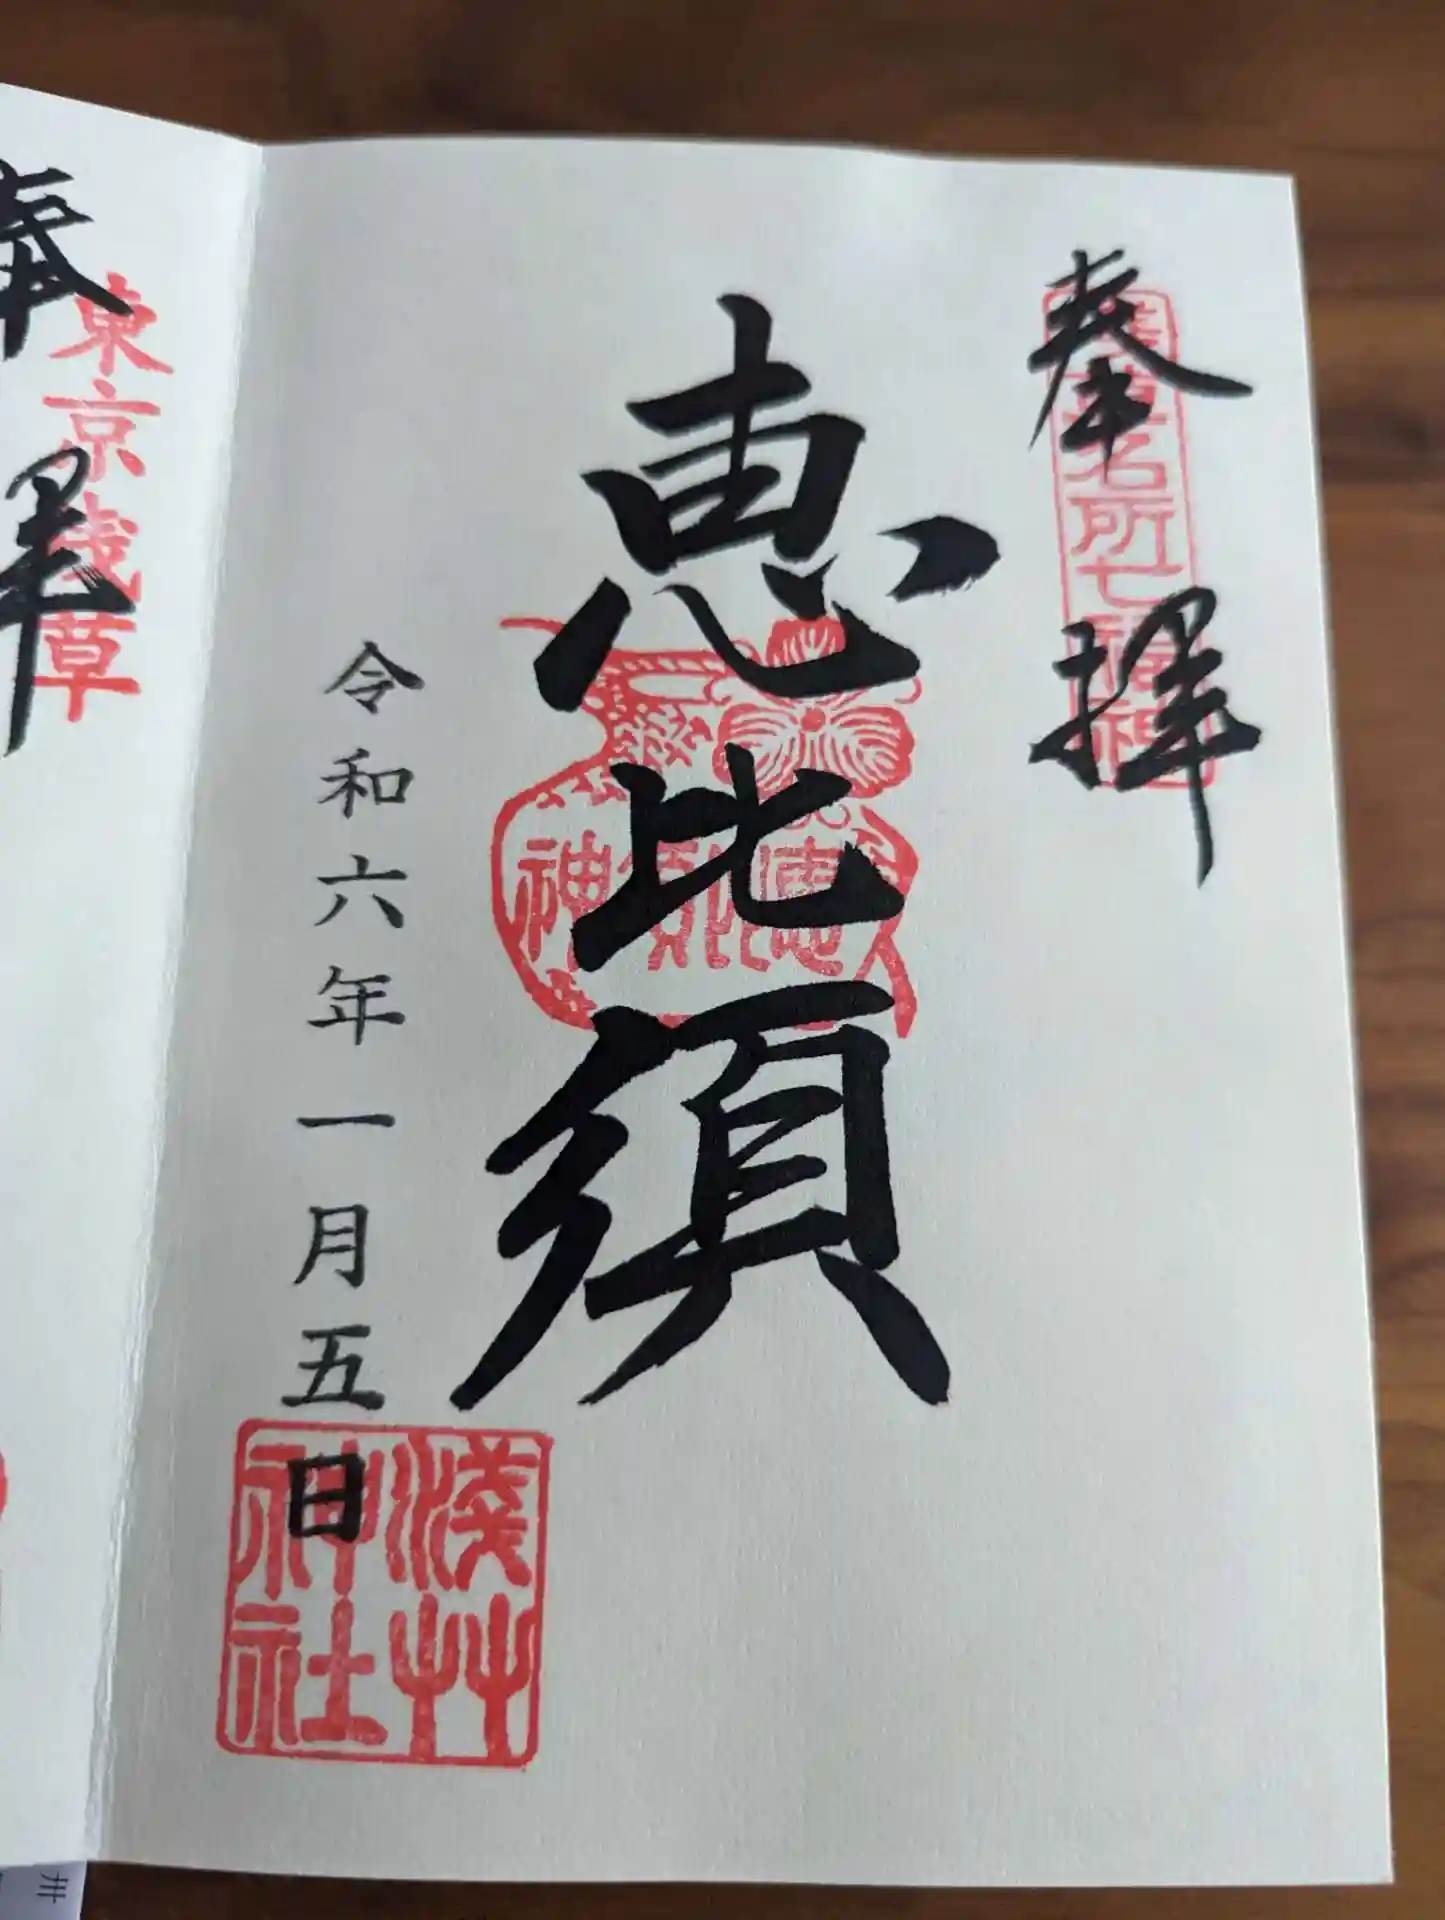 奉拝
浅草名所七福神
恵比須
恵比須神
令和六年一月五日
浅草神社
奉拝
東京浅草